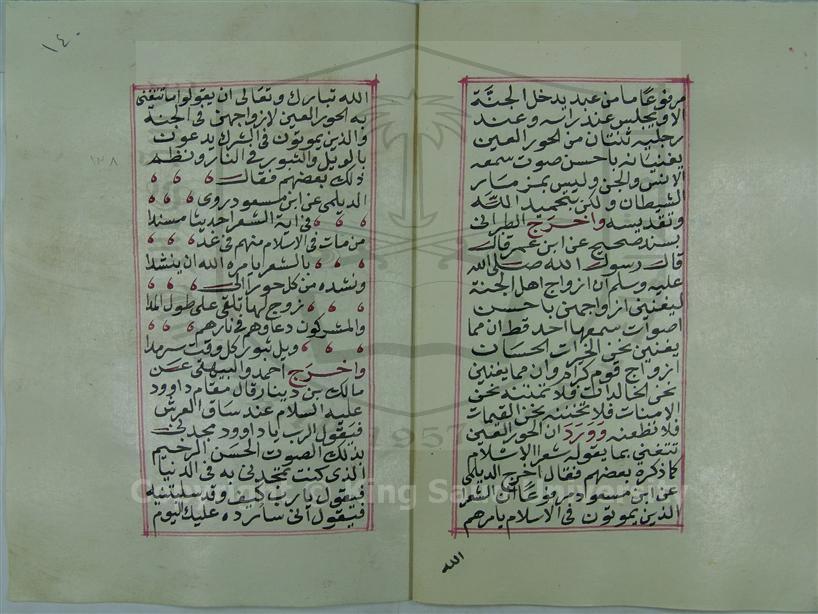 مرفوعا ما من عبد يدخل الجنة
الا ويجلس عند راسه وعند
رجليه ثنتان من الحور العين
يغنيانه باحسن صوت سمعه
الانس والجن وليس بمزمار
الشيطان ولكن بتحميد الله
وتقديسه واخرج الطبراني
بسند صحيح عن ابن عمر قال
قال رسول الله صلى الله
عليه وسلم ان ازواج اهل الجنة
ليغنين ازواجهن باحسن
اصوات سمعها احد قط ان مما
يغنين نحن الخيرات الحسان
ازواج قوم كرام وان مما يغنين
نحن الخالدات فلا نمتنه نحن
الامنات فلا نخفنه نحن المقيمات
فلا نظعنه وورد ان الحور العين
تتغنى بما يقوله شعرا الاسلام
كما ذكره بعضهم فقال اخرج الديلمي
عن ابن مسعود مرفوعا ان الشعرا
الذين يموتون في الاسلام يامرهم
الله
١٤٠
الله تبارك وتعالى ان يقولوا ما تتغنى
به الحور العين لازواجهن في الجنة
والذين يموتون في الشرك يدعون
بالويل والثبور في النار ونظم
١٣٨
ذلك بعضهم فقال
الديلمي عن ابن مسعود روى
في اية الشعر احديثا مسندا
من مات في الاسلام منهم في غد
بالشعر يامره الله ان ينشدا
ونشده من كل حورا الى
زوج لها تلقى على طول المدا
والمشركون دعاوهم في نارهم
ويل ثبور كل وقت سرمدا
واخرج احمد والبيهقي عن
مالك بن دينار قال مقام داوود
عليه السلام عند ساق العرش
فيقول الرب يا داوود مجدني
بذلك الصوت الحسن الرخيم
الذي كنت تمجدني به في الدنيا
فيقول يا رب كيف وقد سلبتنيه
فيقول اني سارده عليك اليوم
Copyright © King Saud University
1957